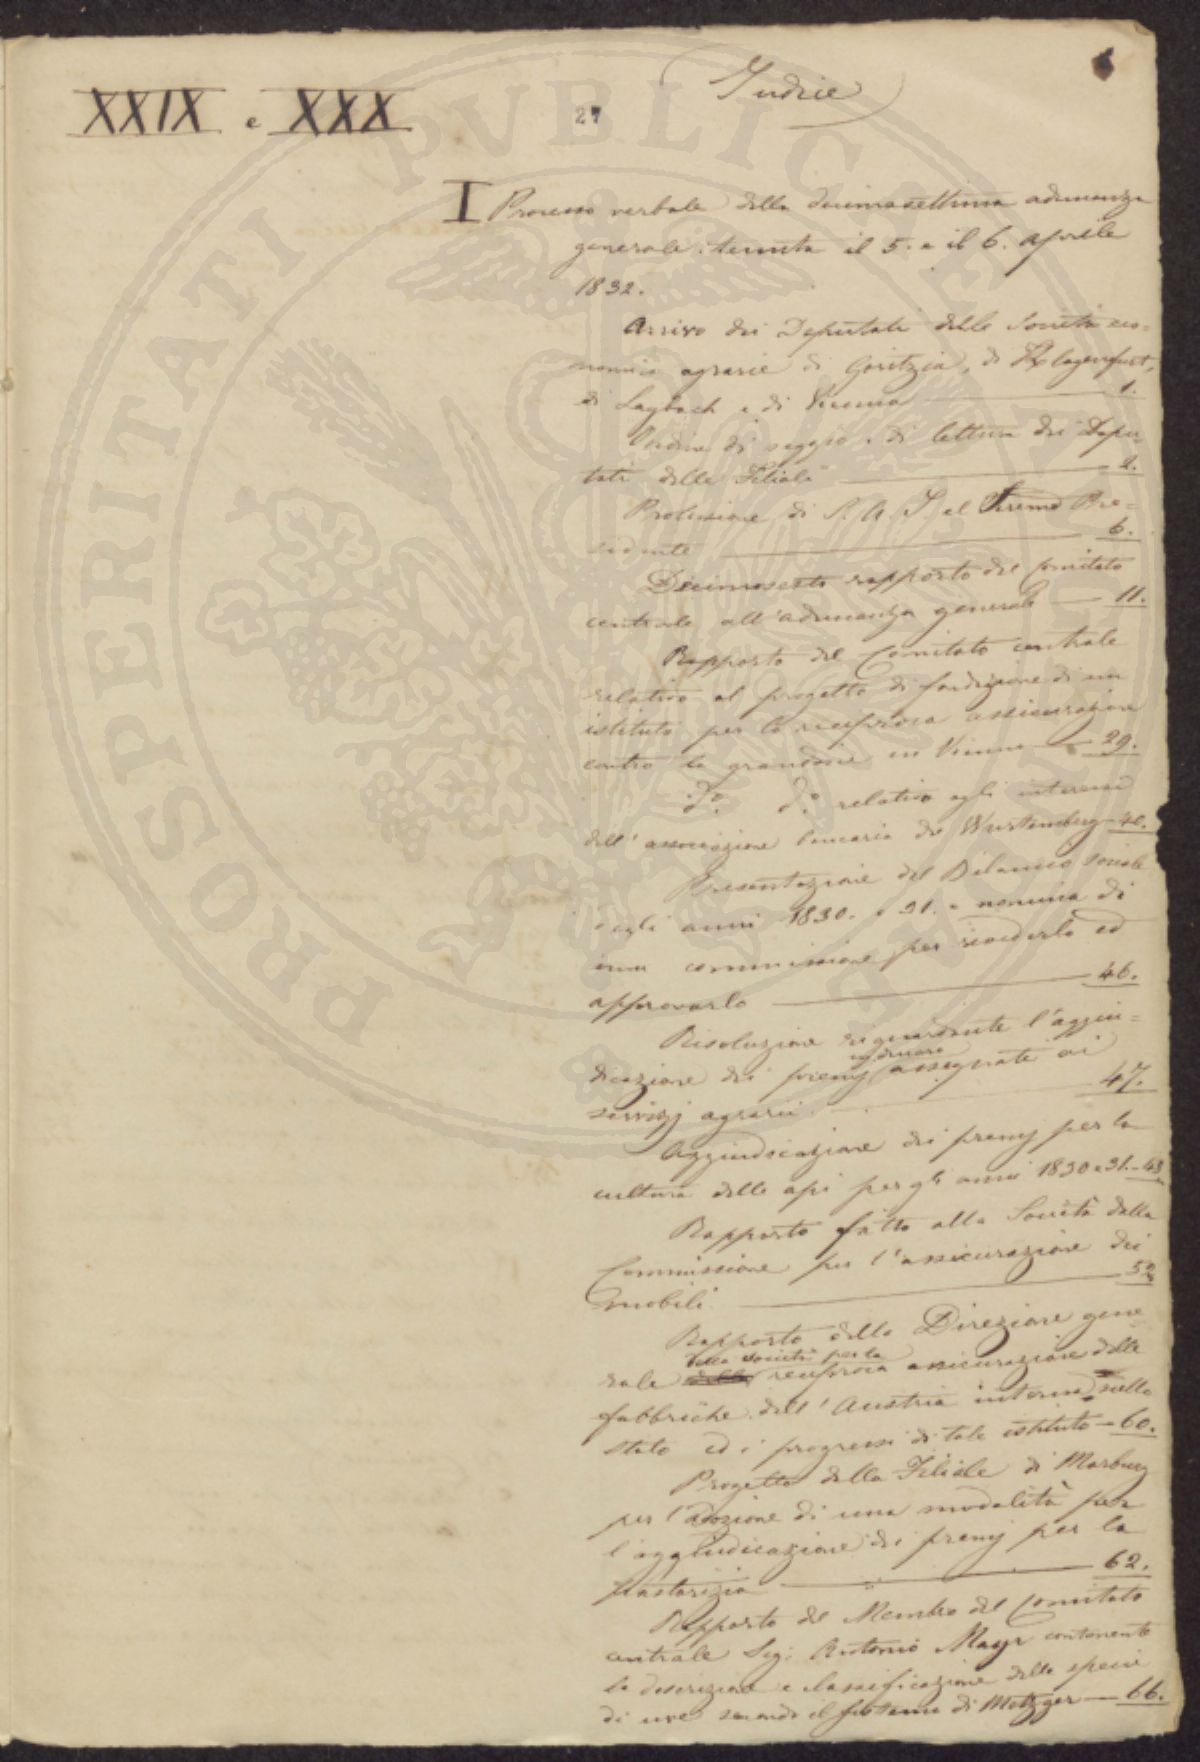 Indice
XXIX e XXX
27
I Processo verbale della decimasettima adunanza
generale tenuta il 5. e il 6. Aprile
1832.
Arrivo dei Deputati delle Società eco=
nomico agrarie di Goritzia, di Klagenfurt,
di Laybach e di Vienna 1.
Ordine di seggio e di lettura dei Depu=
tati delle Filiali 2.
Prolusione di S. A. I. el Pre=
sidente 6.
Decimosesto rapporto del Comitato
centrale all'adunanza generale 11.
Rapporto del Comitato centrale
relativo al progetto di fondazione di un
istituto per la reciproca assicurazione
contro la grandine in Vienna 29.
do. do. relativo agli interessi
dell'associazione bancaria di Wurtemberg 40.
Presentazione del Bilancio sociale
degli anni 1830. e 31. e nomina di
una commissione per rivederlo ed
approvarlo 46.
Risoluzione riguardante l'aggiu=
dicazione dei premj assegnati ai
servizj agrarii 47.
Aggiudicazione dei premj per la
cultura delle api per gli anni 1830 e 31. 48
Rapporto fatto alla Società dalla
Commissione per l'assicurazione dei
mobili 52
Rapporto della Direzione gene
della società per la
rale reciproca assicurazione delle
fabbriche dell'Austria interna sullo
stato ed i progressi di tale istituto 60.
Progetto della Filiale di Marburg
per l'adozione di una modalità per
l'aggiudicazione di premj per la
pastorizia 62.
Rapporto del Membro del Comitato
centrale Sigr. Antonio Mayr contenente
la descrizione e classificazione delle specie
di uve secondo il sistema di Metzger 66.
PROSPERITATI PVBLICAE